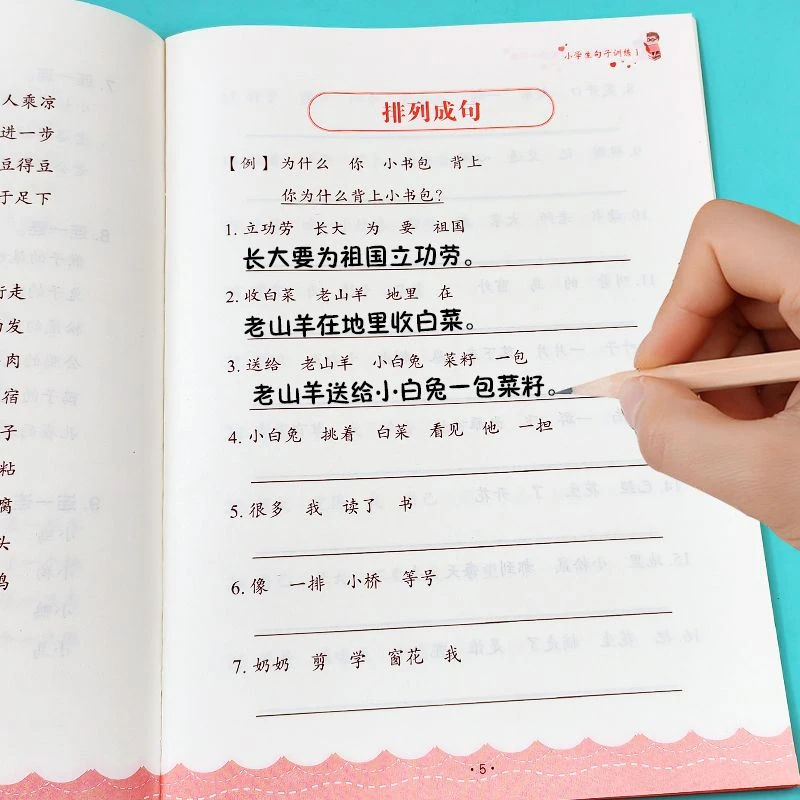 人乘凉
进一步
豆得豆
于足下
行走
发
肉
宿
子
粘
腐
头
鸟
小学生句子训练1
排列成句
【例】为什么 你 小书包 背上
你为什么背上小书包?
1. 立功劳 长大 为 要 祖国
长大要为祖国立功劳。
2. 收白菜 老山羊 地里 在
老山羊在地里收白菜。
3. 送给 老山羊 小白兔 菜籽 一包
老山羊送给小白兔一包菜籽。
4. 小白兔 挑着 白菜 看见 他 一担
5. 很多 我 读了 书
6. 像 一排 小桥 等号
7. 奶奶 剪 学 窗花 我
·5·